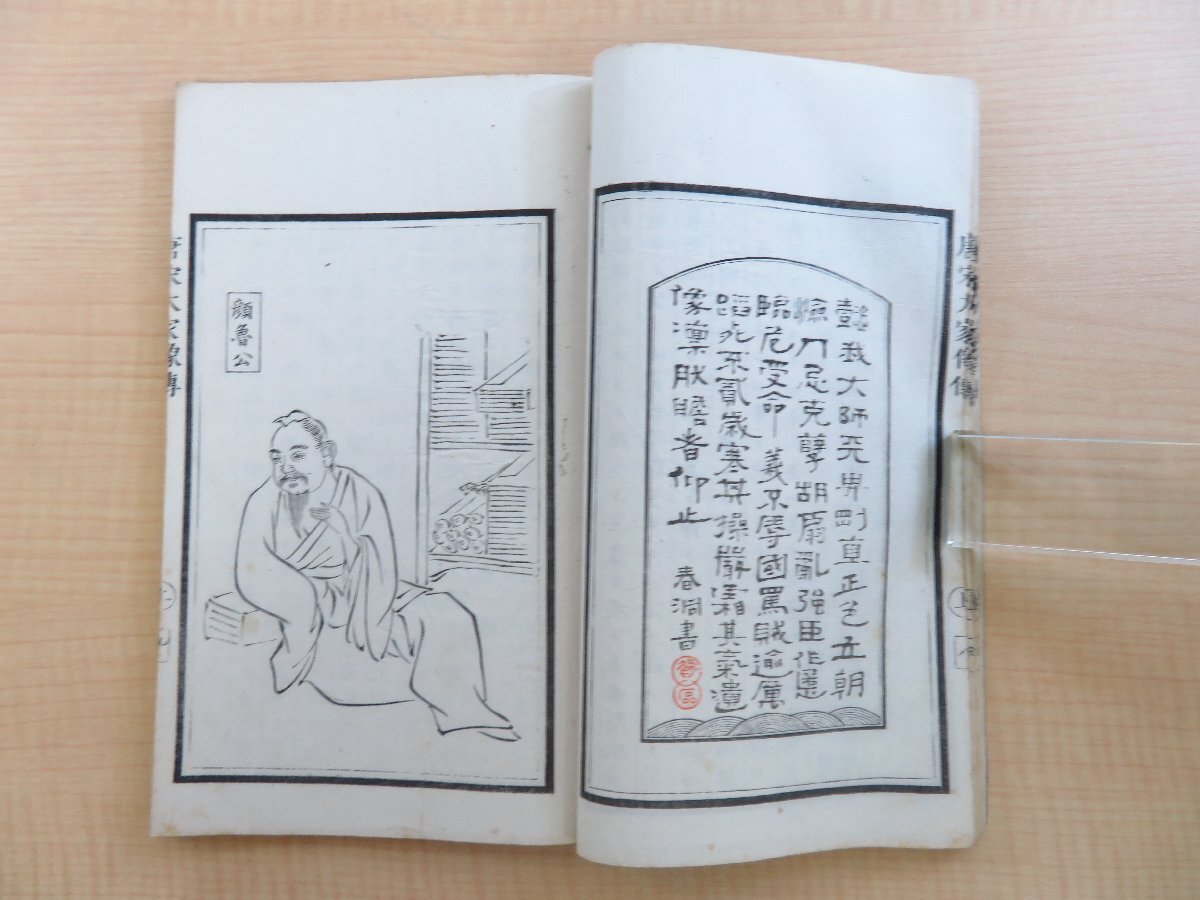 唐宋大家像傳
懿我大師天畀剛直正色立朝
憸人忌克孽胡扇亂強臣作慝
臨危受命義不辱國罵賊逾厲
蹈死不貳歲寒其操嚴霜其氣遺
像凜肰瞻者仰止
春洞書
顏魯公
唐宋大家像傳